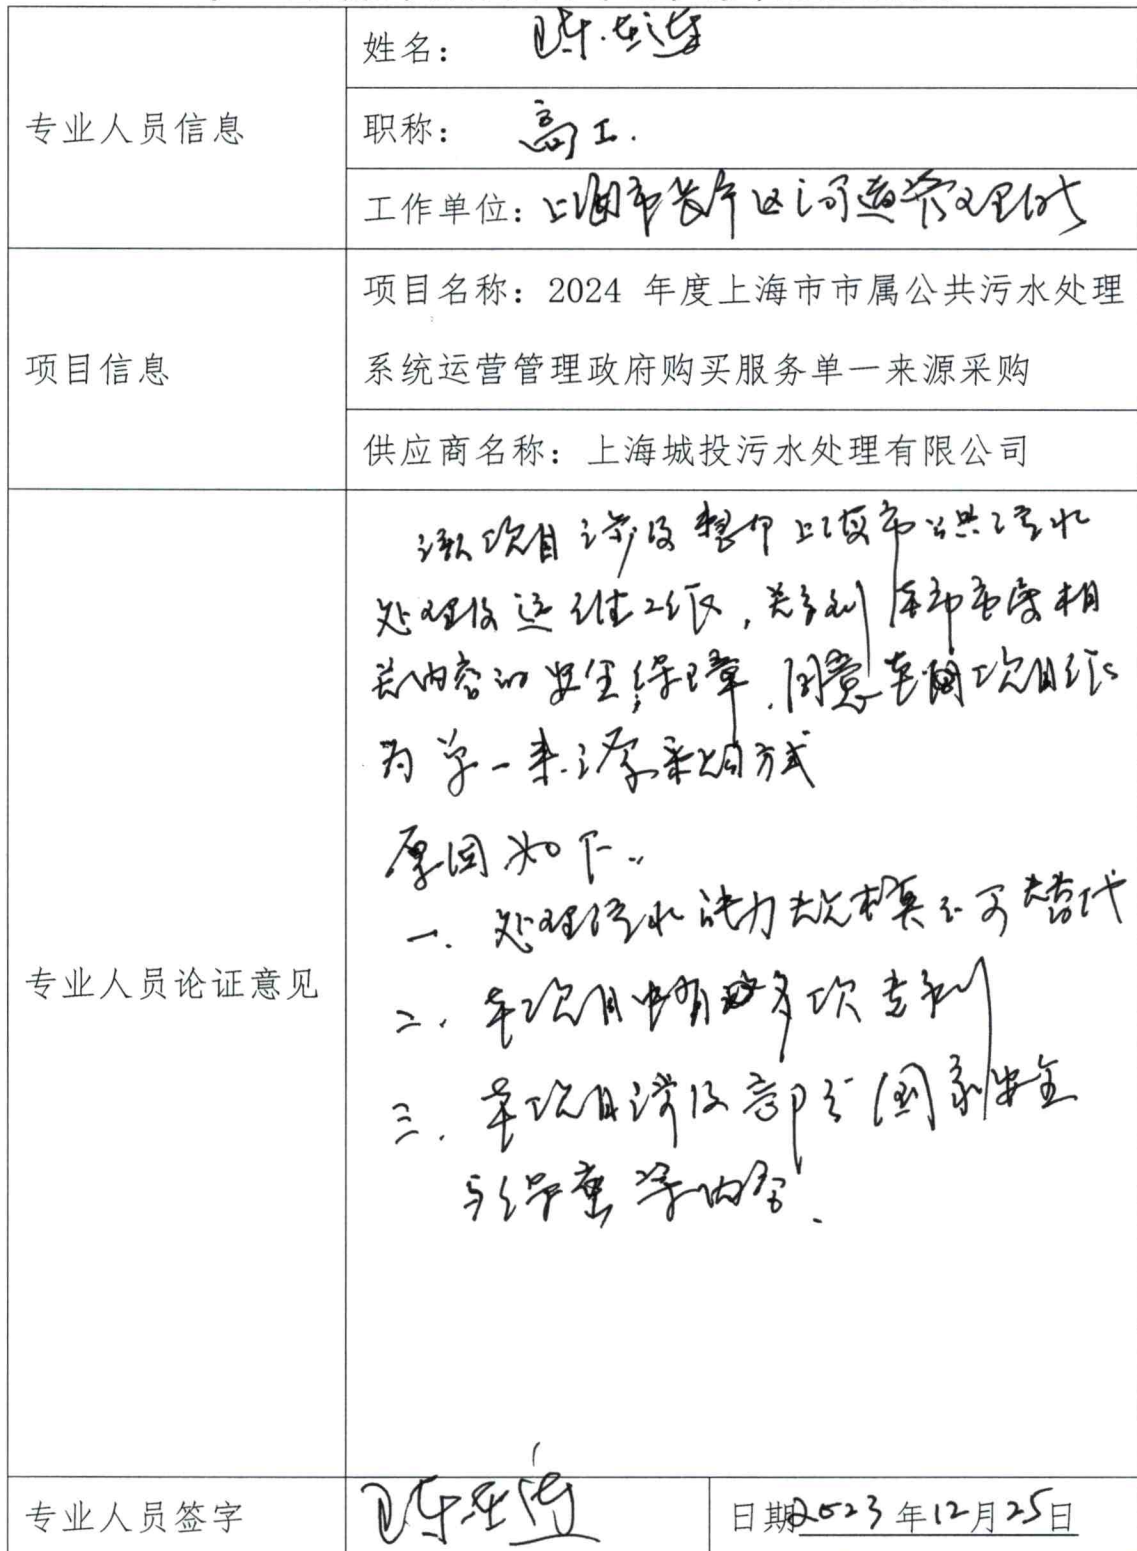 专业人员信息
姓名：陈
职称：高工.
工作单位：上海市长宁区河道管理所
项目信息
项目名称：2024 年度上海市市属公共污水处理
系统运营管理政府购买服务单一来源采购
供应商名称：上海城投污水处理有限公司
专业人员论证意见
该项目涉及整个上海市公共污水
处理及运维工作，关系到本市市
关内容的安全保障，同意本项目作
为单一来源采购方式
原因如下：
一、处理污水能力规模不可替代
二、本项目中有多项专利
三、本项目涉及部分国家安全
与保密等内容.
专业人员签字
陈
日期2023年12月25日